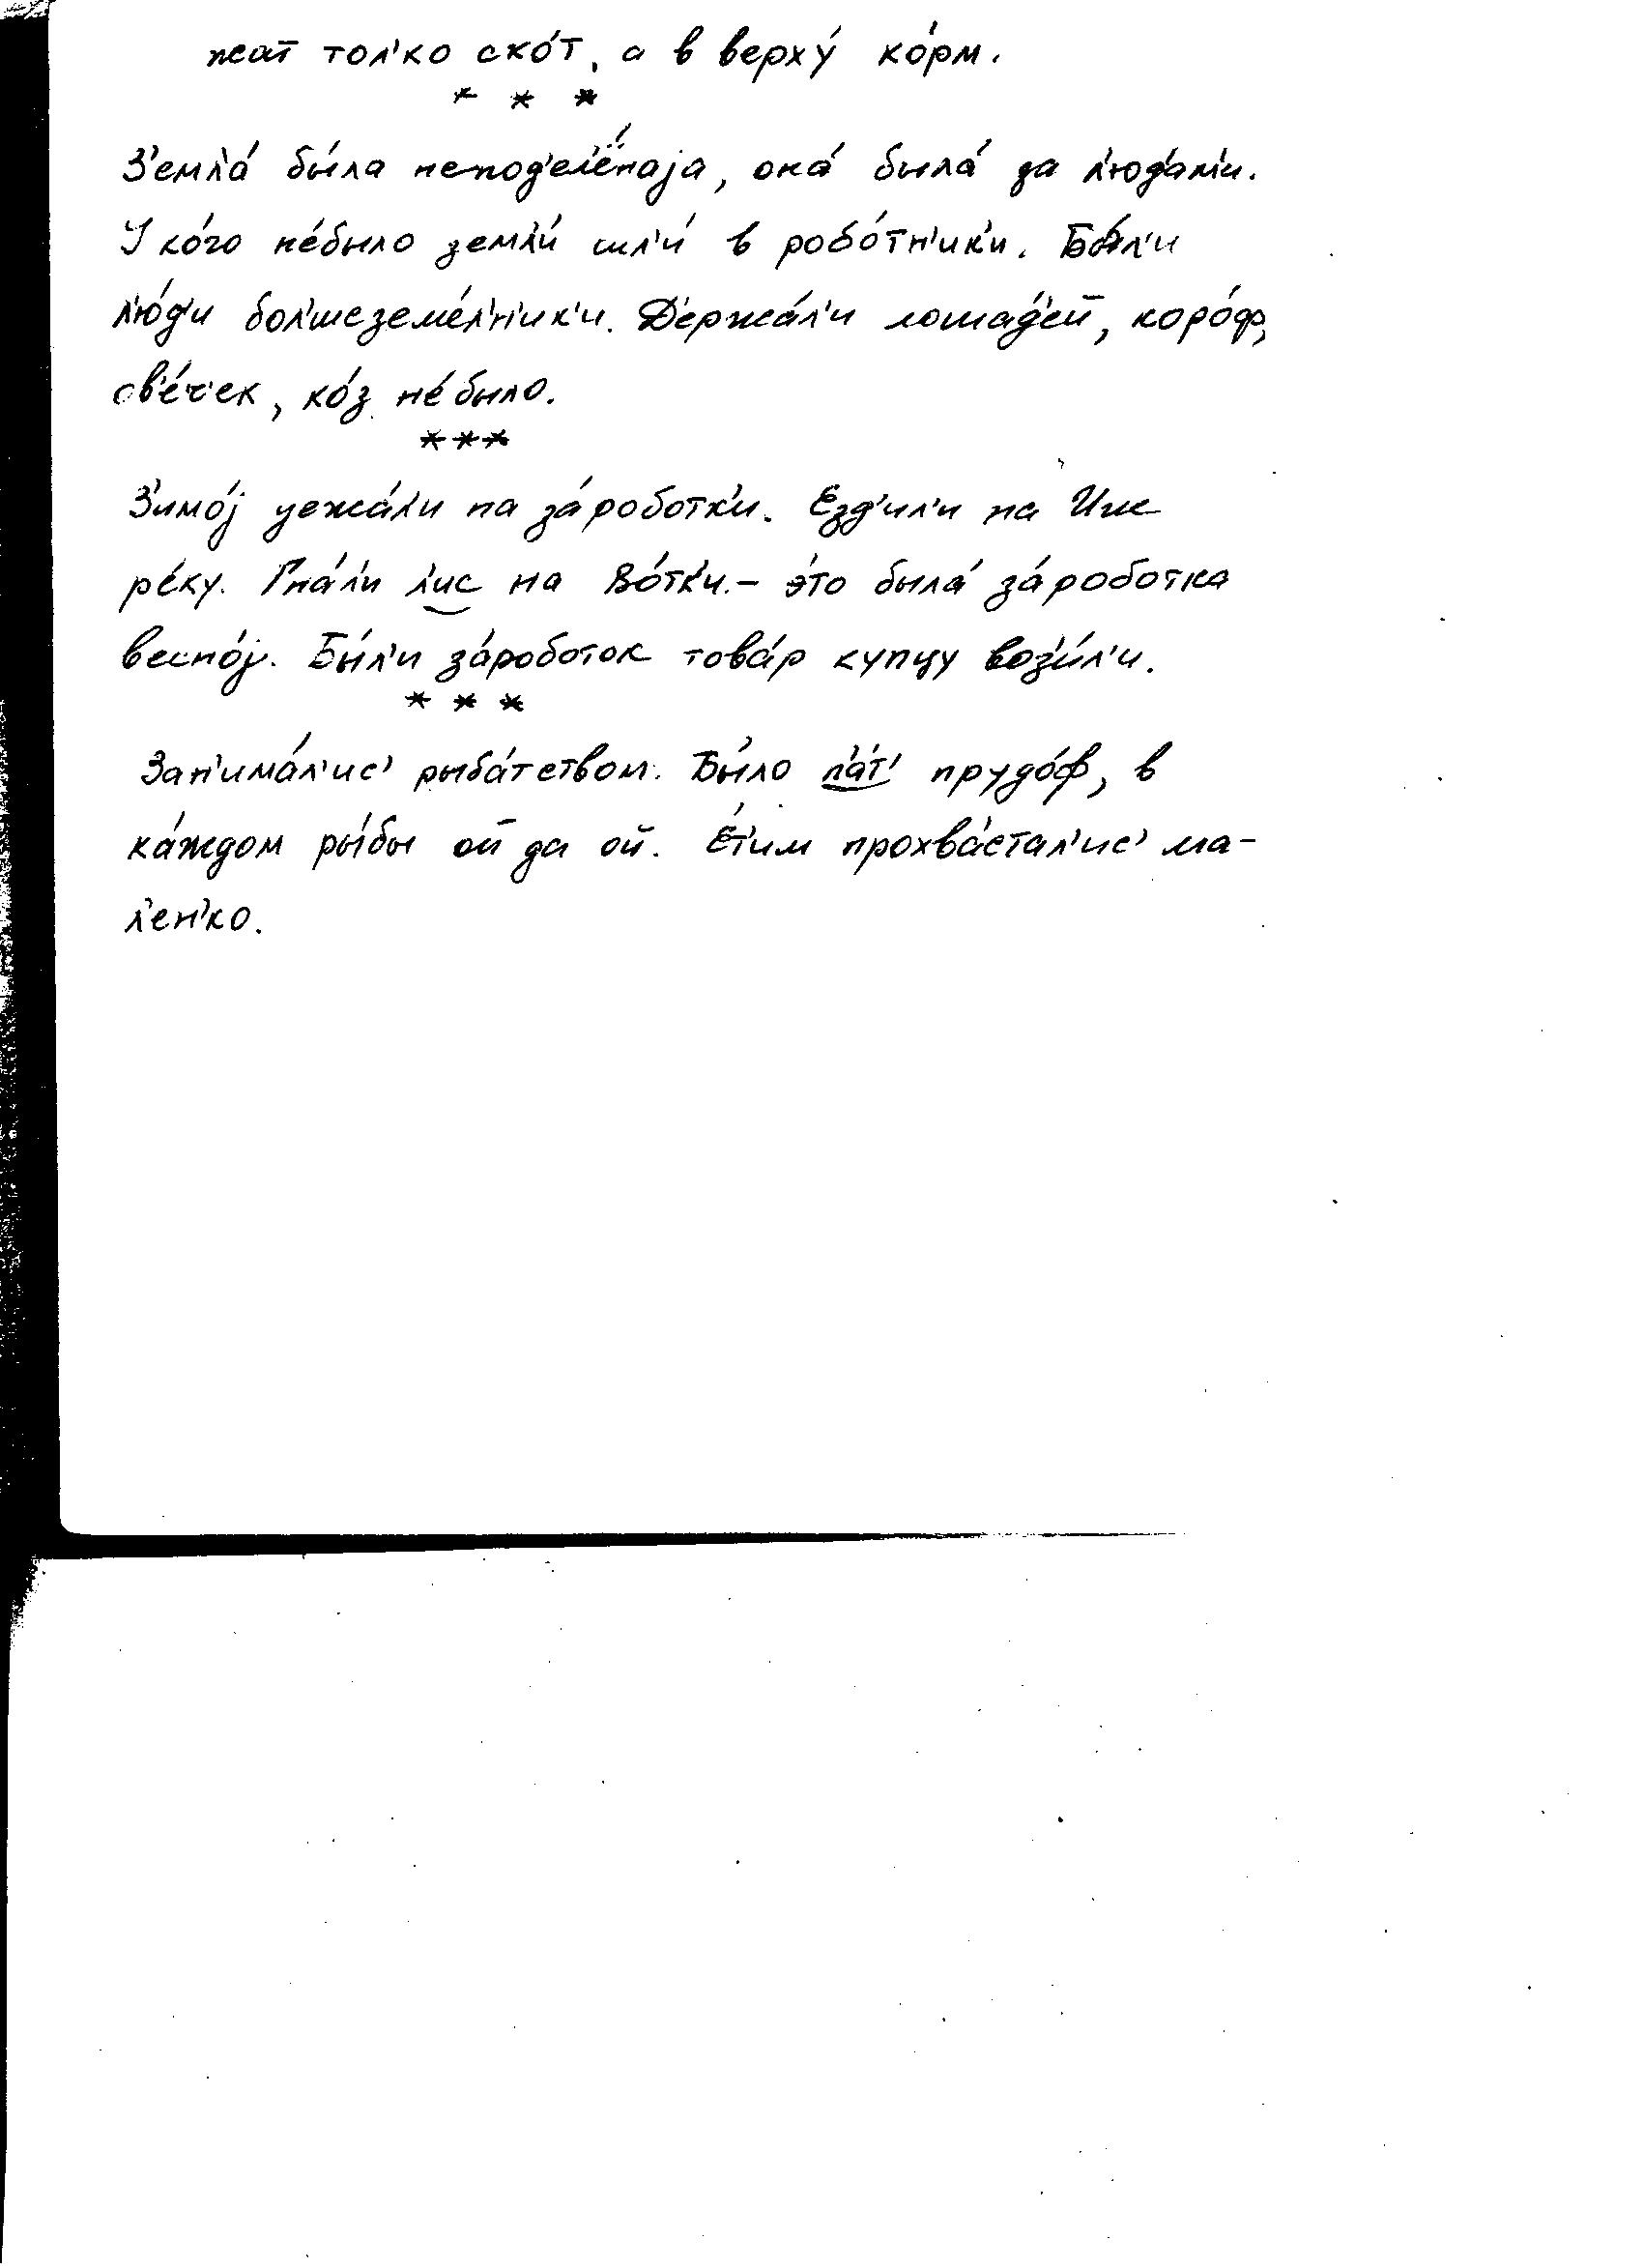 жат тол'ко ско́т, а в верху́ ко́рм.
* * *
З'емл'а́ бы́ла непод'ел'ёнаjа, она́ была́ за л'юд'ам'и.
У ко́го не́было земл'и́ шл'и́ в робо́тн'ик'и. Бы́л'и
л'ю́д'и бол'шеземе́л'н'ик'и. Д'ержа́л'и лошад'е́й, коро́ф,
ов'е́ч'ек, ко́з не́было.
* * *
З'имо́j уежа́л'и на за́роботк'и. Е́зд'ил'и на Иж
ре́ку. Гна́л'и л'ис на Во́тк'и.– э́то была́ за́роботка
весно́j. Бы́л'и за́роботок това́р купцу воз'и́л'и.
* * *
Зан'има́л'ис' рыба́тством. Бы́ло п'а́т' прудо́ф, в
ка́ждом ры́бы ой да ой. Е́т'им прохва́стал'ис' ма-
л'ен'ко.